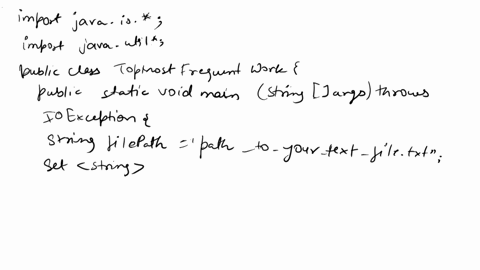 import java.io.*;
import java.util*;
public class TopMost Frequent Work {
public static void main (String [] args) throws
IOException {
String filePath = 'path_to_your_text_file.txt";
Set <String>